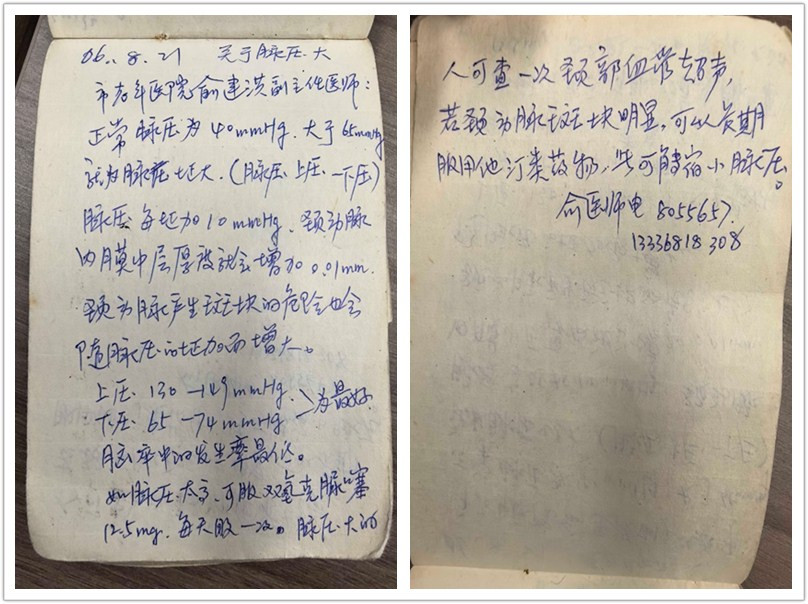 06.8.21 关于脉压大
市老年医院俞建洪副主任医师:
正常脉压为40mmHg.大于65mmHg
就为脉压增大.(脉压:上压-下压)
脉压每增加10mmHg、颈动脉
内膜中层厚度就会增加0.01mm.
颈动脉产生斑块的危险也会
随脉压的增加而增大。
上压.130-149mmHg.
下压.65-74mmHg 为最好
脑卒中的发生率最低。
如脉压太高、可服双氢克脲噻
12.5mg.每天服一次。脉压大的
人可查一次颈部血管超声,
若颈动脉斑块明显,可以长期
服用他汀类药物.也可缩小脉压。
俞医师电8055657.
13336818308